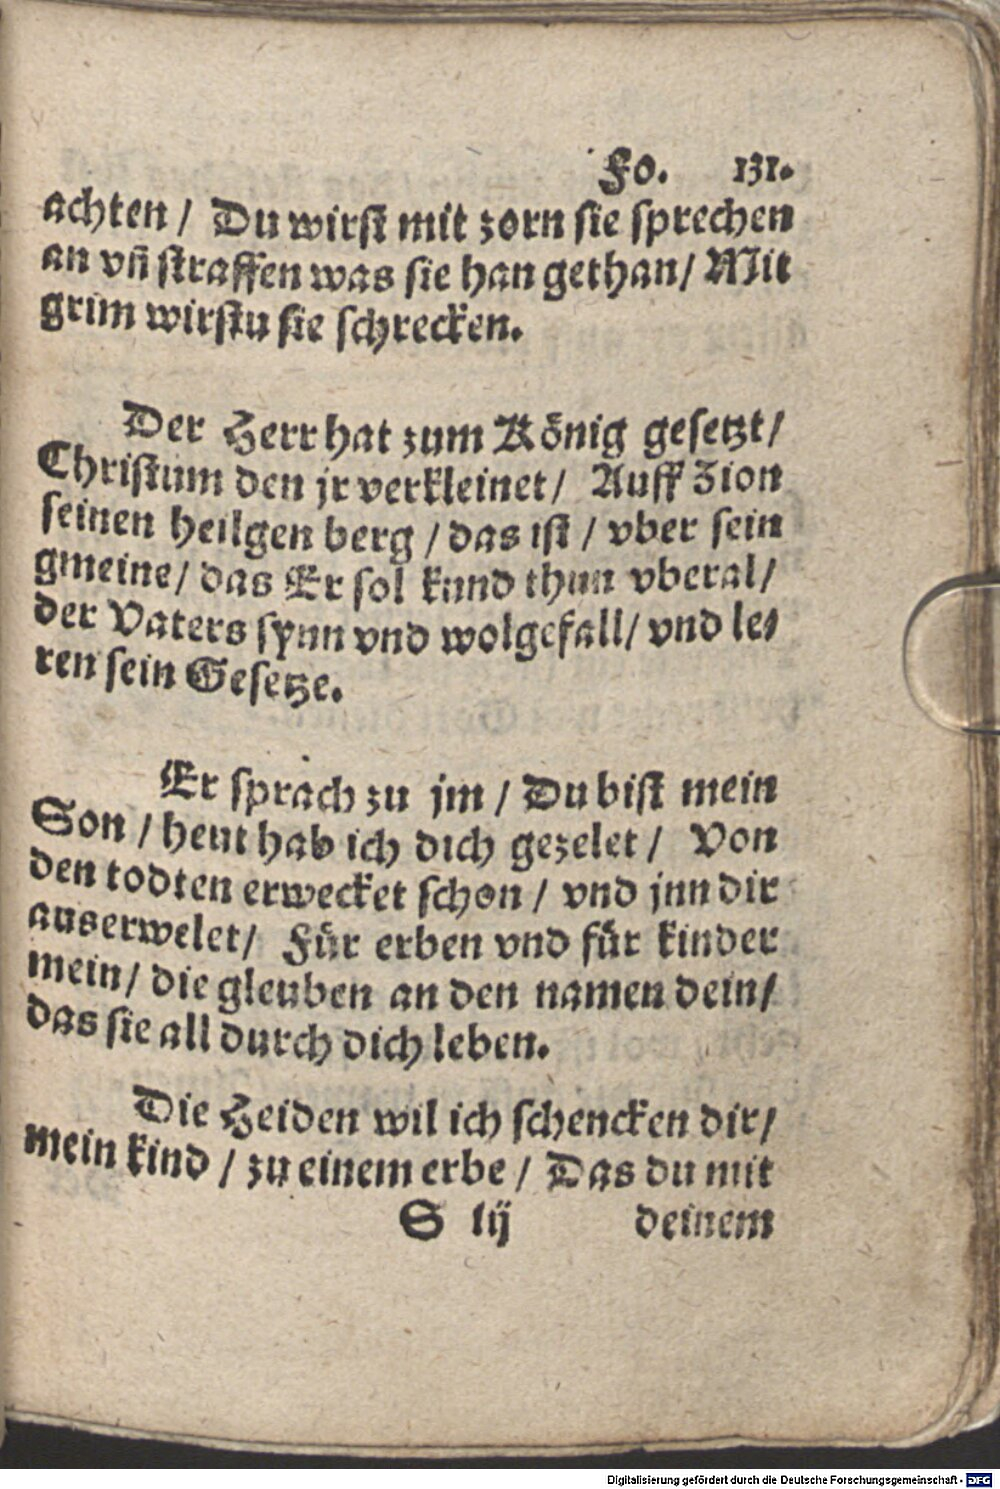 Fo. 131.
achten / Du wirst mit zorn sie sprechen
an vñ straffen was sie han gethan / Mit
grim wirstu sie schrecken.
Der Herr hat zum König gesetzt /
Christum den jr verkleinet / Auff Zion
seinen heilgen berg / das ist / vber sein
gmeine / das Er sol kund thun vberal /
der Vaters synn vnd wolgefall / vnd le⸗
ren sein Gesetze.
Er sprach zu jm / Du bist mein
Son / heut hab ich dich gezelet / Von
den todten erwecket schon / vnd jnn dir
auserwelet / Für erben vnd für kinder
mein / die gleuben an den namen dein /
das sie all durch dich leben.
Die Heiden wil ich schencken dir /
mein kind / zu einem erbe / Das du mit
S iij deinem
Digitalisierung gefördert durch die Deutsche Forschungsgemeinschaft - DFG